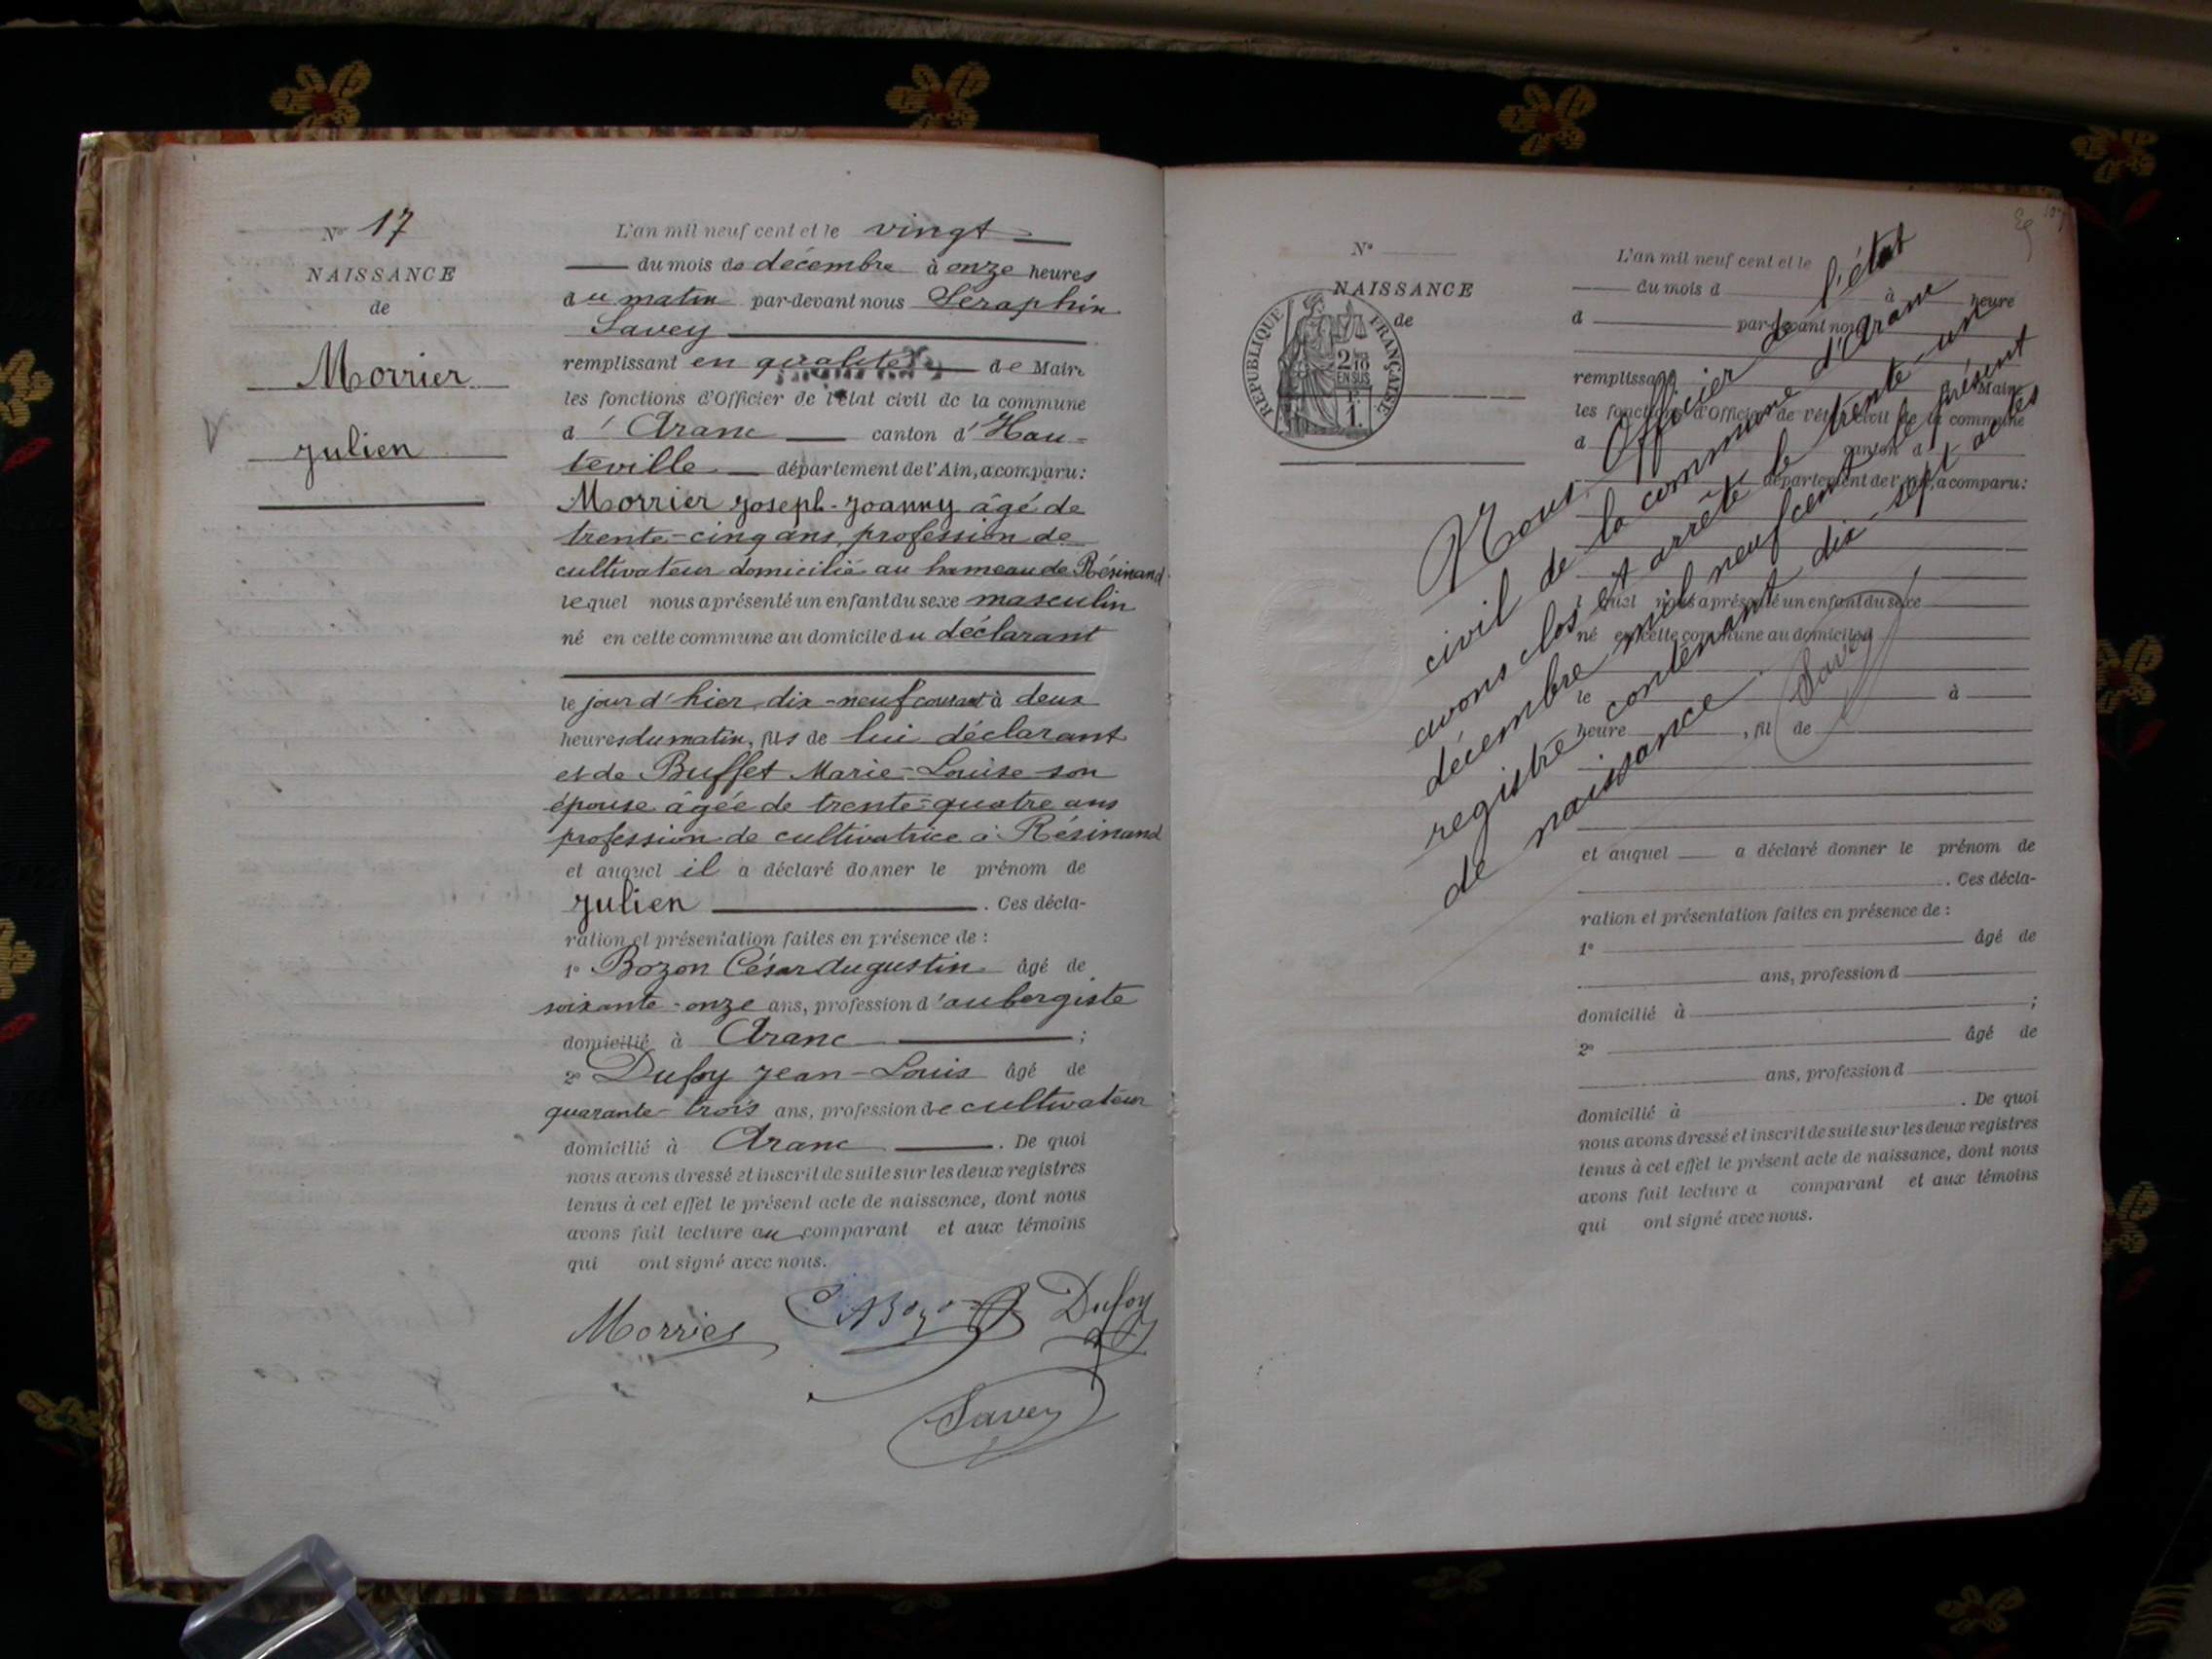 N° 17
NAISSANCE
de
Morrier
Julien
L'an mil neuf cent et le vingt
du mois de décembre à onze heures
du matin par-devant nous Séraphin
Savey
remplissant en qualité de Maire
les fonctions d'Officier de l'état civil de la commune
d'Aranc canton d'Hau=
teville département de l'Ain, a comparu:
Morrier Joseph-Joanny âgé de
trente-cinq ans, profession de
cultivateur domicilié au hameau de Résinand
lequel nous a présenté un enfant du sexe masculin
né en cette commune au domicile du déclarant
le jour d'hier, dix-neuf courant à deux
heures du matin, fils de lui déclarant
et de Buffet Marie-Louise son
épouse âgée de trente-quatre ans
profession de cultivatrice à Résinand
et auquel il a déclaré donner le prénom de
Julien . Ces décla-
ration et présentation faites en présence de :
1° Bozon César Augustin âgé de
soixante-onze ans, profession d'aubergiste
domicilié à Aranc ;
2° Dufoy Jean-Louis âgé de
quarante-trois ans, profession de cultivateur
domicilié à Aranc . De quoi
nous avons dressé et inscrit de suite sur les deux registres
tenus à cet effet le présent acte de naissance, dont nous
avons fait lecture au comparant et aux témoins
qui ont signé avec nous.
Morrier Dufoy
Savey
N°
NAISSANCE
de
RÉPUBLIQUE FRANÇAISE
2/10
EN SUS
1 F.
L'an mil neuf cent et le
du mois d à heure
d par-devant nous
remplissant Maire
les fonctions d'Officier de l'état civil de la commune
d canton d
département de l'Ain, a comparu:
l quel nous a présenté un enfant du sexe
né en cette commune au domicile d
le à
heure , fil de
et auquel a déclaré donner le prénom de
. Ces décla-
ration et présentation faites en présence de :
1° âgé de
ans, profession d
domicilié à ;
2° âgé de
ans, profession d
domicilié à . De quoi
nous avons dressé et inscrit de suite sur les deux registres
tenus à cet effet le présent acte de naissance, dont nous
avons fait lecture a comparant et aux témoins
qui ont signé avec nous.
Nous Officier de l'état
civil de la commune d'Aranc
avons clos et arrêté le trente-un
décembre mil neuf cent le présent
registre contenant dix-sept actes
de naissance.
Savey